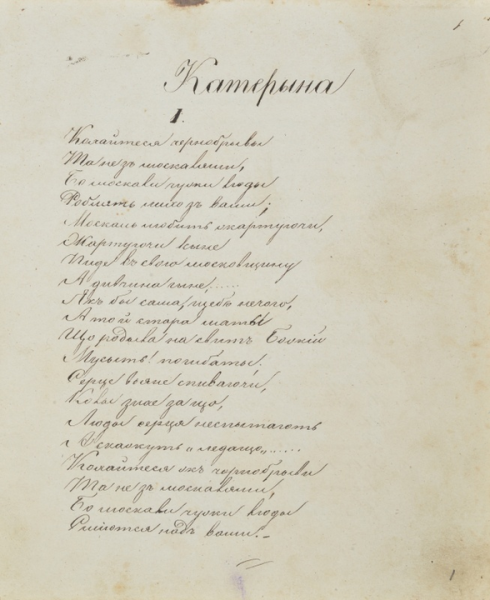 Катерына
1.
Кохайтеся чернобривы
Та не зъ москалями,
Бо москали чужи люды
Роблять лихо зъ вами;
Москаль любить жартуючи,
Жартуючи кыне
Пиде въ свою московщину
А дивчина гыне......
Якъ бы сама, щебъ нечого,
А то й стара маты
Що родыла на свитъ Божій
Мусыть! погибаты.
Серце вьяне спиваючи,
Колы знае за що,
Люды серця неспытають
А скажуть „ледащо„......
Кохайтеся жъ чернобрывы
Та не зъ москалями,
Бо москали чужи люды
Смiются надъ вами.
1